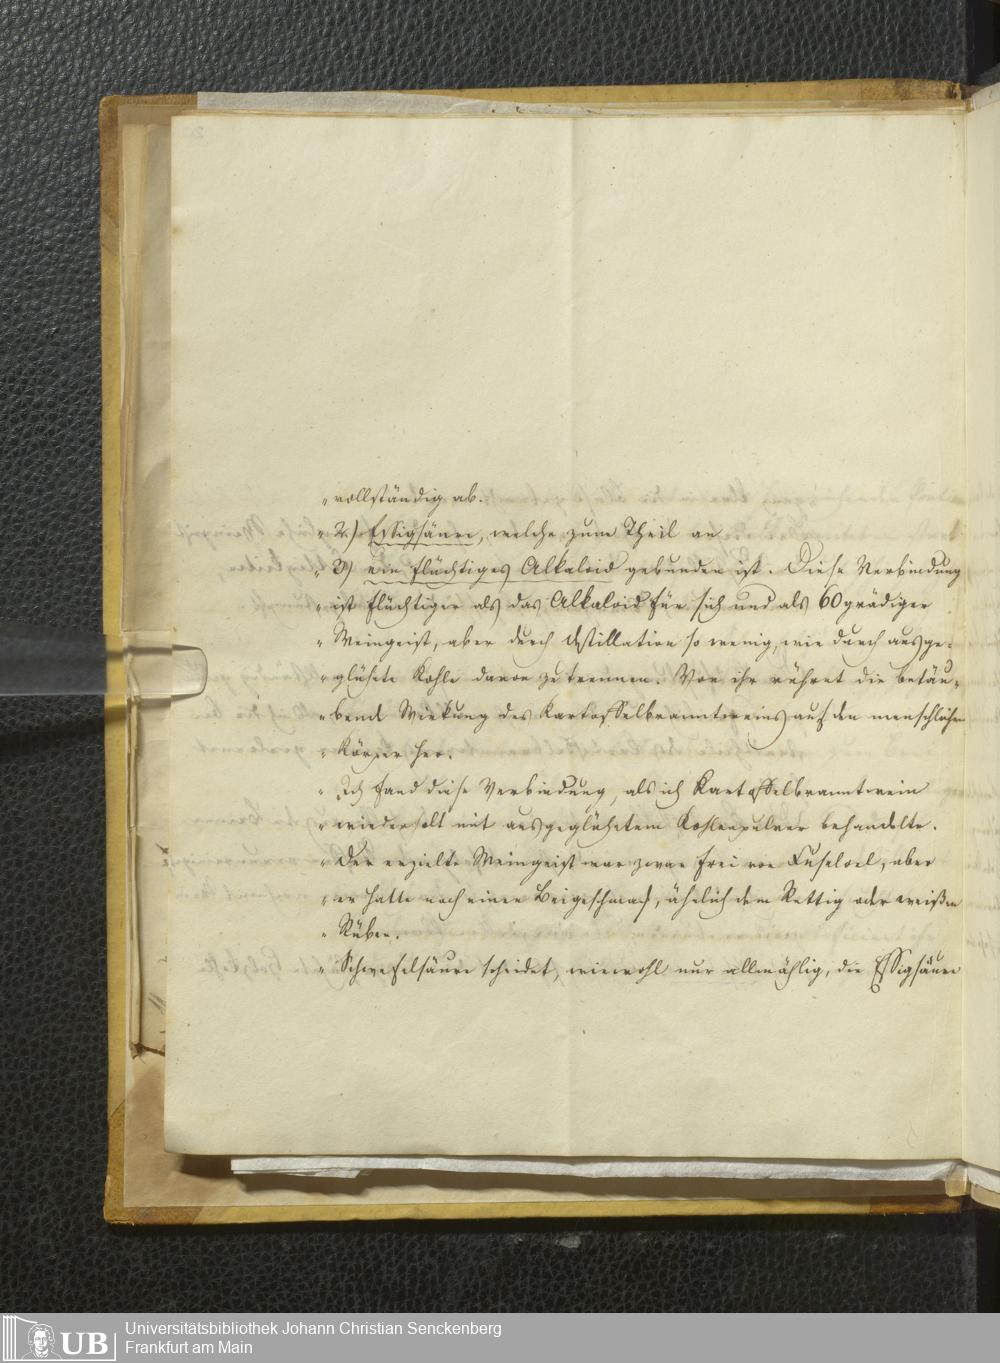 „ vollständig ab.
„ 2.) Essigsäure, welche zum Theil an
„ 3) ein flüchtiges Alkaloid gebunden ist. Diese Verbindung
„ ist flüchtiger als das Alkaloid für sich und als 60grädiger
„ Weingeist, aber durch Destillation so wenig, wie durch ausge-
„ glühte Kohle davon zu trennen. Von ihr rühret die betäu-
„ bende Wirkung des Kartoffelbranntweins auf den menschlichen
„ Körper her.
„ Ich fand diese Verbindung, als ich Kartoffelbranntwein
„ wiederholt mit ausgeglühetem Kohlenpulver behandelte.
„ Der erzielte Weingeist war zwar frei von Fuseloel, aber
„ er hatte noch einen Beigeschmack, ähnlich dem Rettig oder weißen
„ Rüben.
„ Schwefelsäure scheidet, wiewohl nur allmählig, die Essigsäure
UB
Universitätsbibliothek Johann Christian Senckenberg
Frankfurt am Main